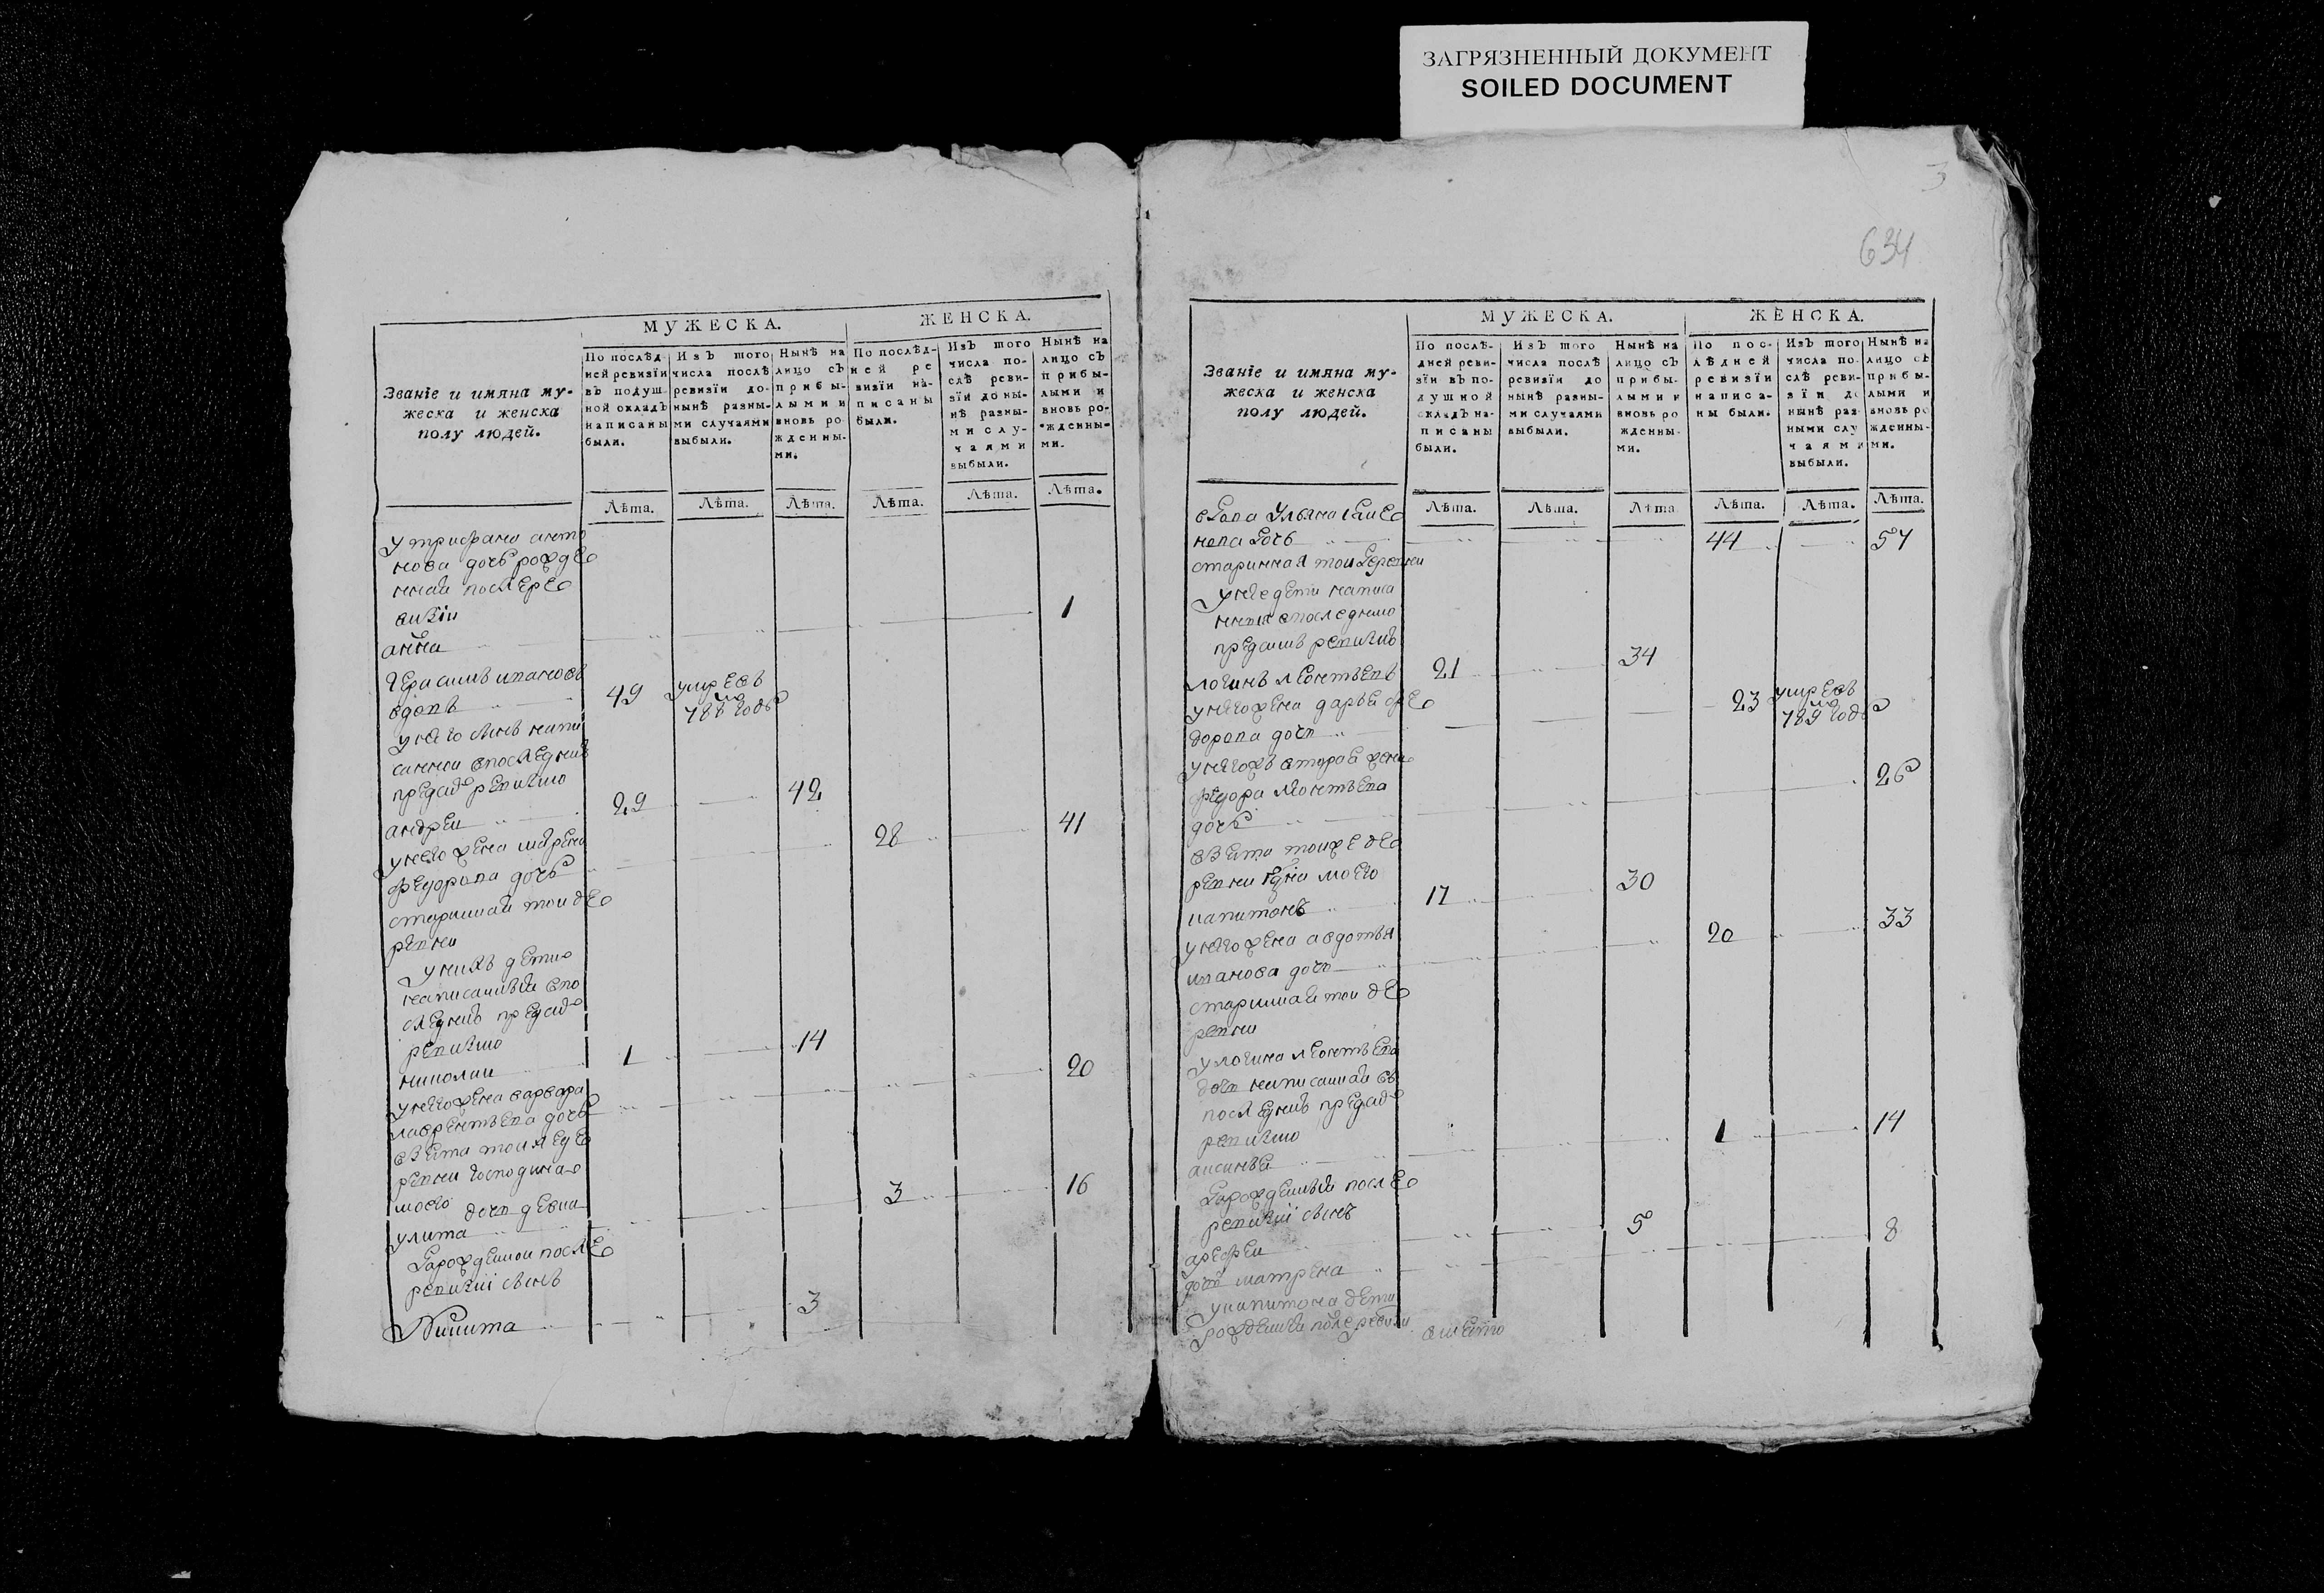 ЗАГРЯЗНЕННЫЙ ДОКУМЕНТ
SOILED DOCUMENT
3
634
МУЖЕСКА.
ЖЕНСКА.
Званіе и имяна му-
жеска и женска
полу людей.
По послѣд-
ней ревизїи
въ подуш-
ной окладъ
написаны
были.
Изъ того
числа послѣ
ревизїи до-
нынѣ разны-
ми случаями
выбыли.
Нынѣ на
лицо съ
прибы-
лыми и
вновь ро
жденны-
ми.
По послѣд-
ней ре
визїи на-
писаны
были.
Изъ того
числа по-
слѣ реви-
зїи доны-
нѣ разны-
ми слу-
чаями
выбыли.
Нынѣ на
лицо съ
прибы-
лыми и
вновь ро-
жденны-
ми.
Лѣта. Лѣта. Лѣта. Лѣта. Лѣта. Лѣта.
у трифана анто
нова дочь рожде
нная после ре
визїи
анна 1
герасимъ ивановъ
вдовъ 49 умре въ
788 годъ
у него сынъ напи
санной в последнию
пред сию ревизию
андреи 29 42
у него жена марена
федорова дочь 28 41
старинная тои де
ревни
у нихъ дети
написанныя в по
следнию пред сию
ревизию
николаи 1 14
у него жена варвара
лаврентьева дочь 20
взята тои ж де
ревни господина
моего дочь девка
улита 3 16
зарожденои после
ревизиї сынъ
никита 3
МУЖЕСКА.
ЖЕНСКА.
Званіе и имяна му-
жеска и женска
полу людей.
По послѣ-
дней реви-
зїи въ по-
душной
окладъ на-
писаны
были.
Изъ того
числа послѣ
ревизїи до
нынѣ разны-
ми случаями
выбыли.
Нынѣ на
лицо съ
прибы-
лыми и
вновь ро
жденны-
ми.
По пос-
лѣдней
ревизїи
написа-
ны были.
Изъ того
числа по-
слѣ реви-
зїи до
нынѣ раз
ными слу
чаями
выбыли.
Нынѣ на
лицо съ
прибы-
лыми и
вновь ро
жденны-
ми.
Лѣта. Лѣта. Лѣта. Лѣта. Лѣта. Лѣта.
вдова ульяна
нова дочь 44 57
старинная тои деревни
у нее дети написа
нныя в последнию
пред сию ревизию
логинъ леонтьевъ 21 34
у него жена дарья фе
дорова дочь 23 умре въ
789 годъ
у него жъ вторая жена
федора леонтьева
дочь 26
взята тои же де
ревни гдна моего
капитонъ 17 30
у него жена авдотья
иванова дочь 20 33
старинная тои де
ревни
у логина леонтьева
дочь написанная въ
последнию пред сию
ревизию
аксинья 1 14
зарожденныя после
ревизиї сынъ
арефеи 5
дочь матрена 8
у капитона дети
рожденныя после ревизи